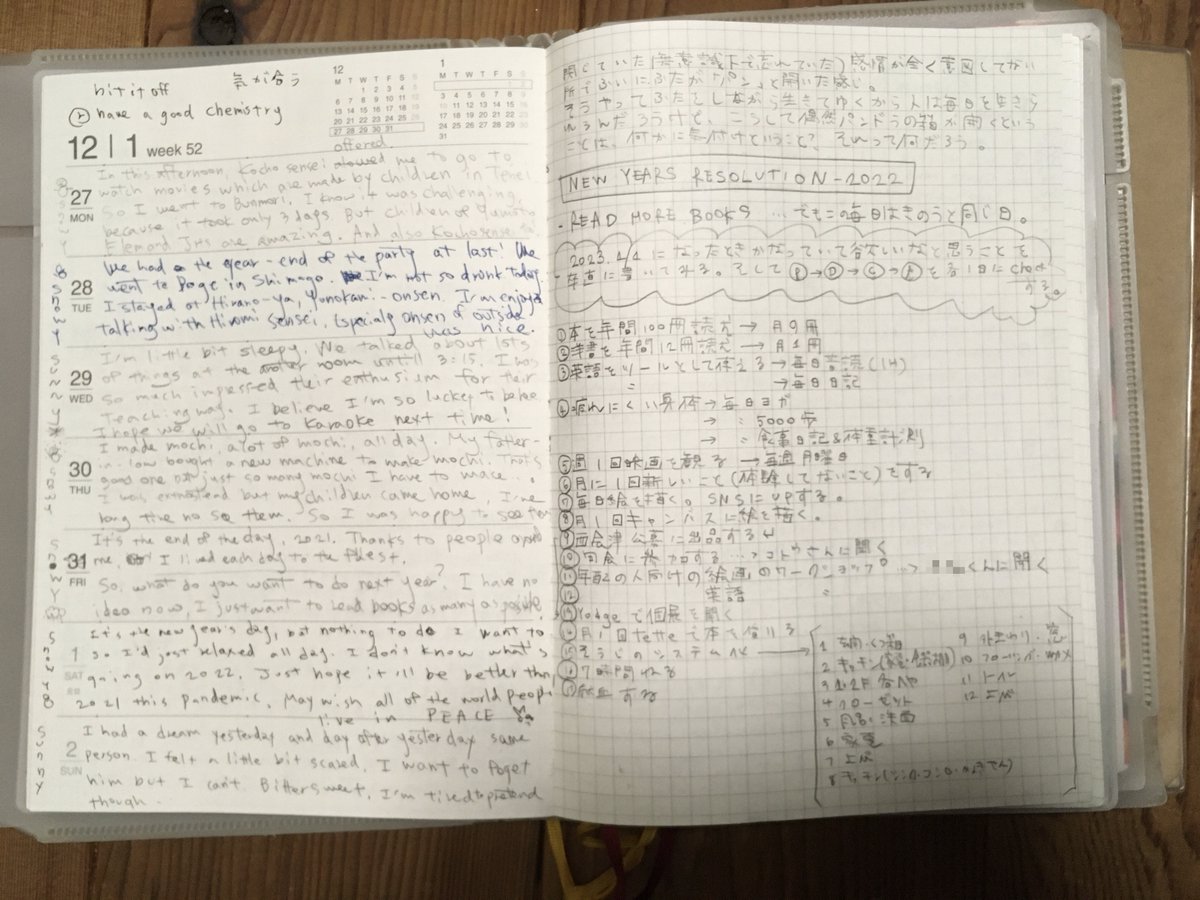 hit it off 気が合う
⓪ have a good chemistry
12
M T W T F S S
1 2 3 4 5
6 7 8 9 10 11 12
13 14 15 16 17 18 19
20 21 22 23 24 25 26
27 28 29 30 31
1
M T W T F S S
1 2
3 4 5 6 7 8 9
10 11 12 13 14 15 16
17 18 19 20 21 22 23
24 25 26 27 28 29 30
31
12 | 1 week 52
offered
27 MON
In this afternoon, Kocho sensei allowed me to go to
watch movies which are made by children in Tenei
So I went to Bunmori, I know it was challenging,
because it took only 3 days. But children of Yumoto
Elem and JHS are amazing. And also Kocho sensei too.
28 TUE
snowy
We had a the year-end of the party at last! We
went to Doge in Shimogo. I'm not so drunk today.
I stayed at Hirano-ya, Yunokami-onsen. I'm enjoyed
talking with Hiromi sensei, Especialy onsen of outside
was nice.
29 WED
sunny
I'm little bit sleepy. We talked about lots
of things at the another room until 3:15. I was
so much impressed their enthusism for their
Teaching way. I believe I'm so luckey to be here
I hope we will go to Karaoke next time!
30 THU
I made mochi, a lot of mochi, all day. My father-
in-low bought a new machine to make mochi. That's
good one but just so many mochi I have to make..
I was exhausted but my children came home, I've
long time no see them. So I was happy to see them
31 FRI
snowy
It's the end of the day, 2021. Thanks to people around
me, I lived each day to the fullest.
So, what do you want to do next year? I have no
idea now, I just want to lead books as many as possible.
1 SAT
snowy
It's the new year's day, but nothing to do I want to
so I'd just relaxed all day. I don't know what's
going on 2022. Just hope it'll be better than
2021 this pandemic, May wish all of the world people
live in PEACE
2 SUN
sunny
I had a dream yesterday and day after yesterday same
person. I felt a little bit scared, I want to foget
him but I can't. Bittersweet, I'm tired to pretend
though.
閉じていた(無意識下で忘れていた)感情が全く意図してない
所でふいにふたがパン!と開いた感じ。
そうやってふたをしながら生きてゆくから人は毎日を生きら
れるんだろうけど、こうして偶然パンドラの箱が開くという
ことは、何かに気付けということ? それって何だろう。
NEW YEARS RESOLUTION-2022
・READ MORE BOOKS …でもこの毎日はきのうと同じ日。
2023.1/1 になったときかなっていて欲しいなと思うことを
率直に書いてみる。そして Ⓟ→Ⓓ→Ⓒ→Ⓐ を 1日に check
する。
①本を年間100冊読む → 月9冊
②洋書を年間12冊読む → 月1冊
③英語をツールとして使える → 毎日音読(1H)
〃 → 毎日日記
④疲れにくい身体 → 毎日ヨガ
→ 〃 5000歩
→ 〃 食事日記&体重計測
⑤週1回映画を観る → 毎週月曜日
⑥月に1回新しいこと(体験してないこと)をする
⑦毎日絵を描く。SNSにUPする。
⑧月1回キャンバスに絵を描く。
⑨西会津公募に出品する
⑩ 会に参加する …→コトウさんに聞く
⑪年配の人向けの絵画のワークショップ …→ くんに聞く
⑫ 英語 〃
⑬ で個展を開く
⑭月1回tetteで本を借りる
⑮そうじのシステム化 →
⑯7時間ねる
⑰ する
1 玄関・くつ箱
2 キッチン
3 1・2F各へや
4 クローゼット
5 風呂・洗面
6 家電
7 エバ
8 キッチン
9 外まわり・窓
10 フローリング・wax
11 トイレ
12 エバ